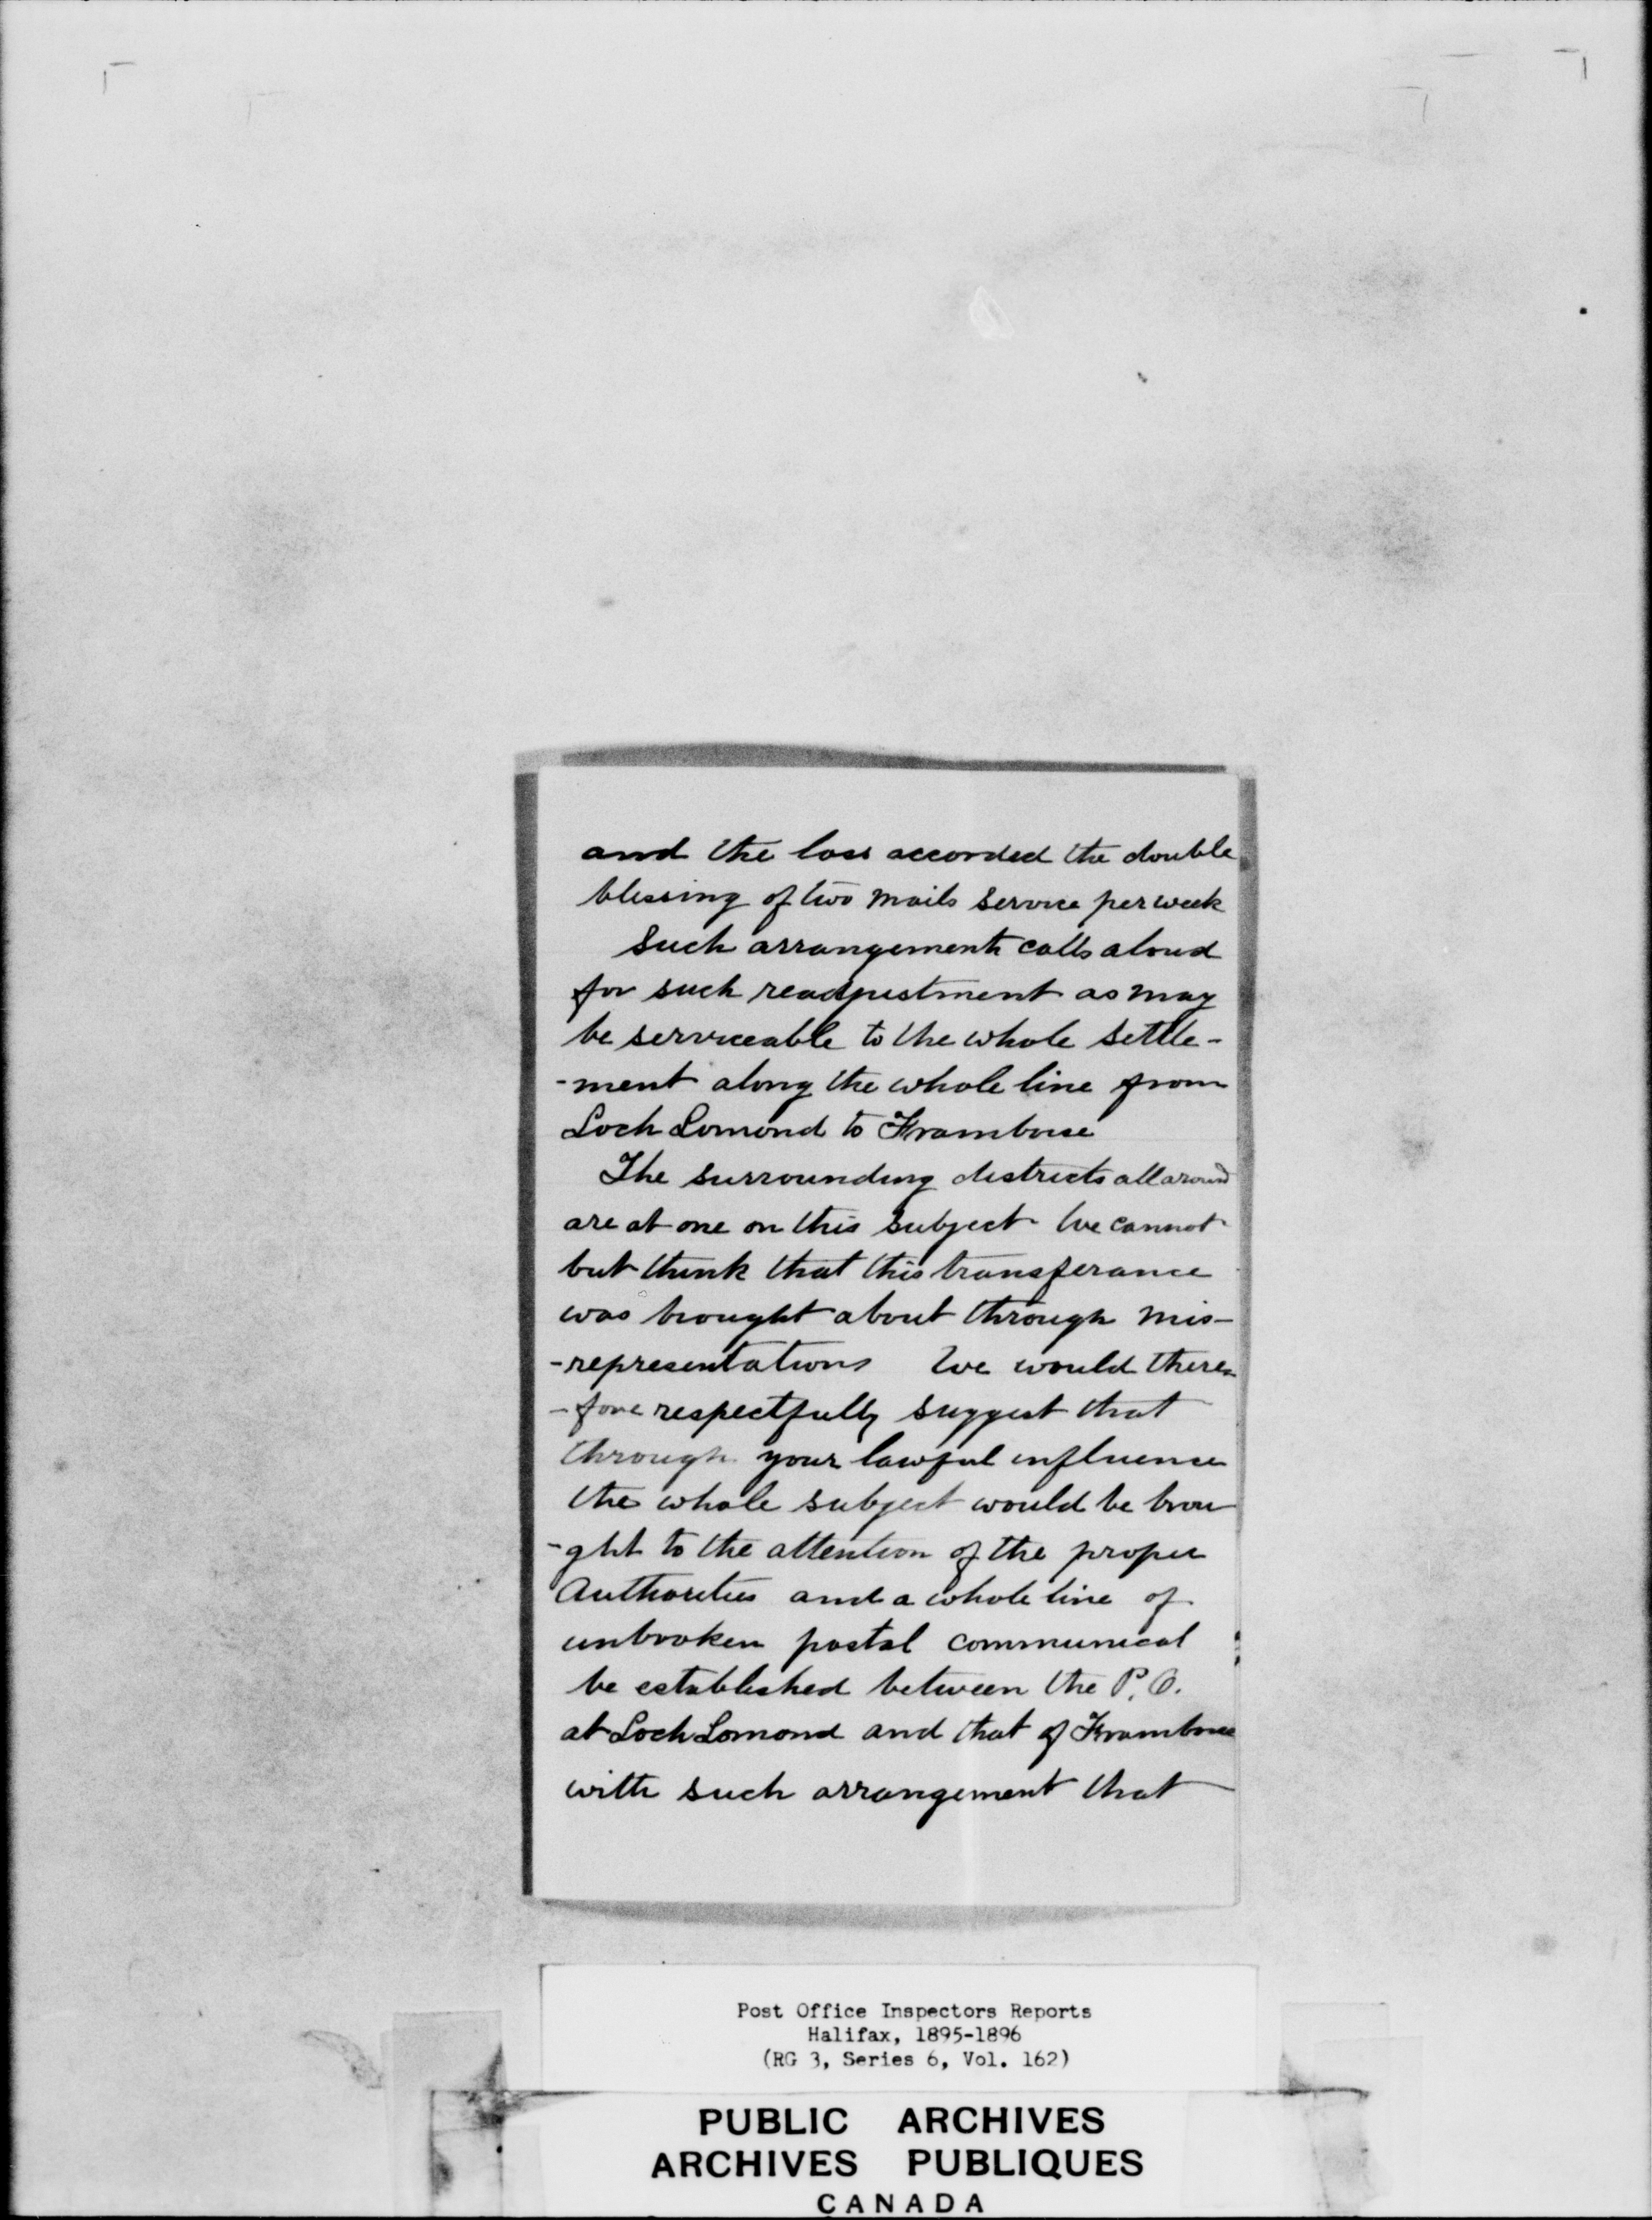 and the loss accorded the double
blessing of two mails service per week
Such arrangements calls aloud
for such readjustment as may
be serviceable to the whole settle-
-ment along the whole line from
Loch Lomond to Framboise
The surrounding districts all around
are at one on this subject We cannot
but think that this transferance
was brought about through mis-
-representations We would there-
-fore respectfully suggest that
through your lawful influence
the whole subject would be brou
-ght to the attention of the proper
Authorities and a whole line of
unbroken postal communicat
be established between the P. O.
at Loch Lomond and that of Framboise
with such arrangement that
Post Office Inspectors Reports
Halifax, 1895-1896
(RG 3, Series 6, Vol. 162)
PUBLIC ARCHIVES
ARCHIVES PUBLIQUES
CANADA